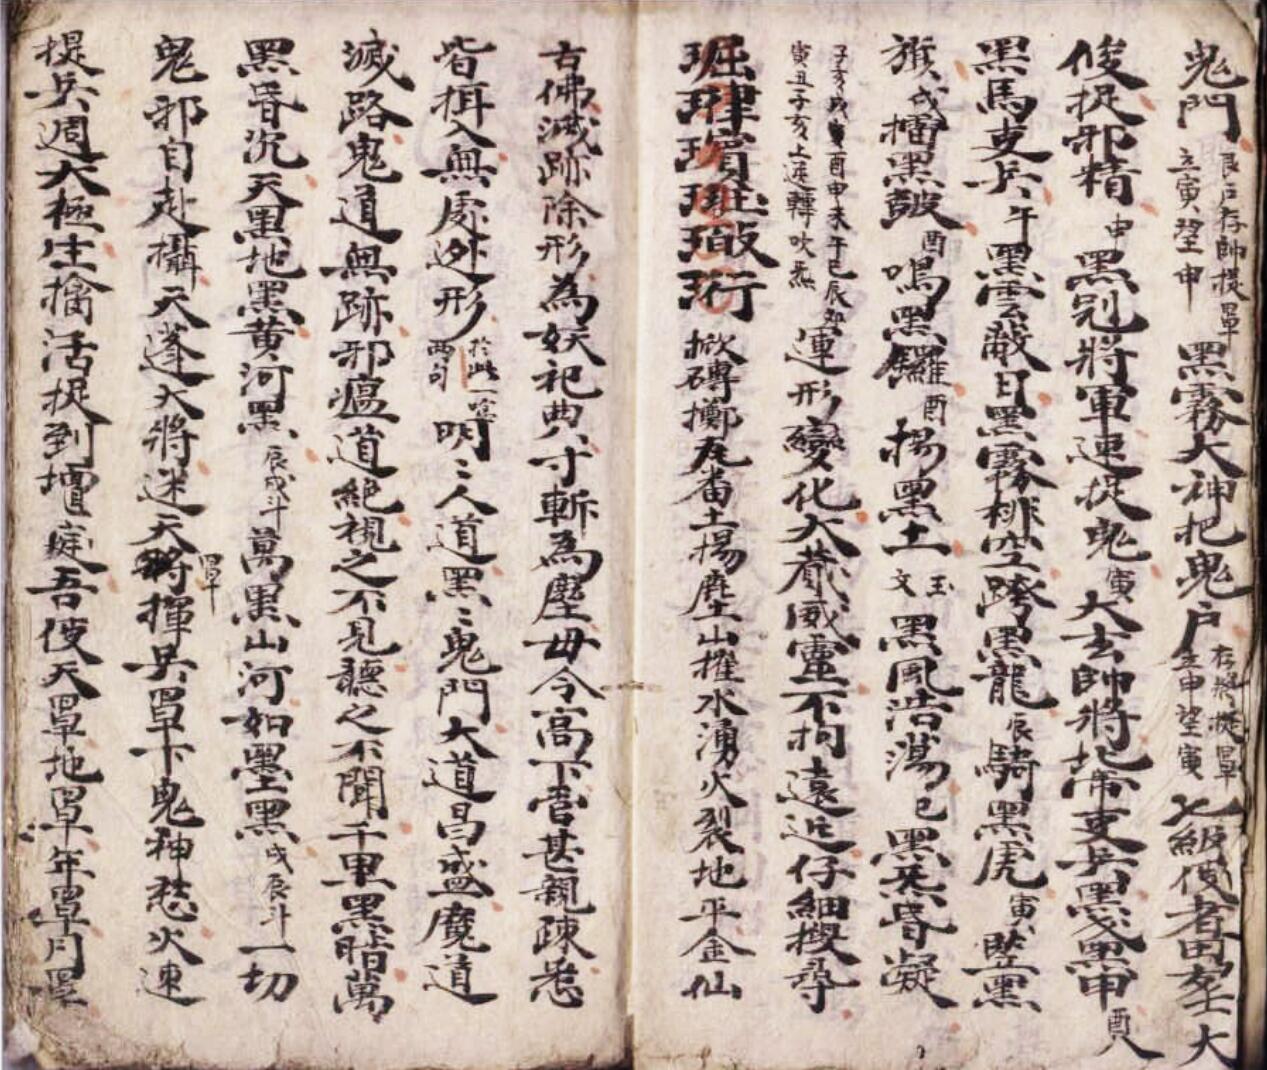 鬼門艮戶存帥提罩立寅望申黑霧大神把鬼戶存將提罩立申望寅七級使者田
俊捉邪精申黑剋將軍速捉鬼寅大玄帥將地帝吏兵黑戈黑甲酉人
黑馬吏兵午黑雲蔽日黑霧排空跨黑龍辰騎黑虎寅豎黑
旗戌擂黑皷酉鳴黑鑼酉揚黑土玉文黑風浩蕩巳黑炁昏凝
子亥戌酉申未午巳辰卯寅丑子亥上逆轉吹炁連形變化大彰威靈不拘遠近仔細搜尋
掀磚擲瓦番土揚塵山摧水湧火裂地平金仙
古佛滅跡除形為妖祀典寸斬為塵毋令高下管甚親疎悉
皆拜入無處逃形於此一宗兩句明〻人道黑〻鬼門大道昌盛魔道
滅路鬼道無跡邪瘟道絕視之不見聽之不聞千里黑暗萬
黑昏沉天黑地黑黄河黑辰戌斗萬黑山河如墨黑戌辰斗一切
鬼邪自赴攝天蓬大將迷天將揮兵罩下鬼神愁火速
提兵週大極生擒活捉到壇庭吾使天罩地罩年罩月罩